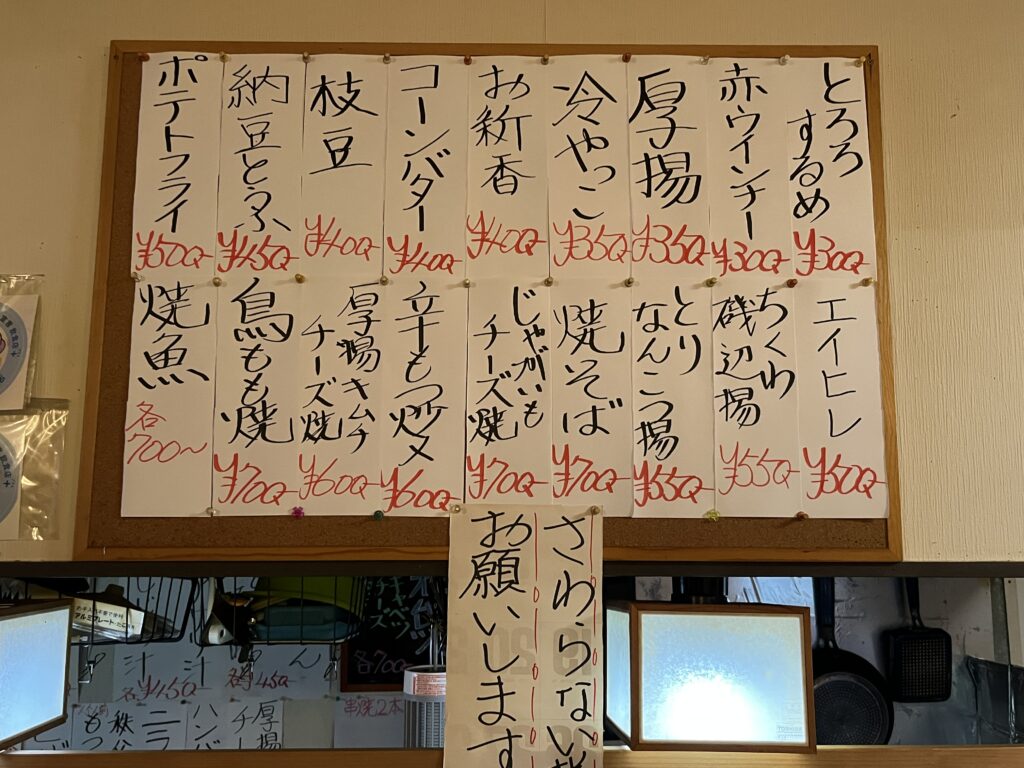 とろろ
するめ
¥300
赤ウインナー
¥300
厚揚
¥350
冷やっこ
¥350
お新香
¥400
コーンバター
¥400
枝豆
¥400
納豆とうふ
¥450
ポテトフライ
¥500
エイヒレ
¥500
ちくわ
磯辺揚
¥550
とり
なんこつ揚
¥550
焼そば
¥700
じゃがいも
チーズ焼
¥700
辛もつ炒メ
¥600
厚揚キムチ
チーズ焼
¥600
鳥もも焼
¥700
焼魚
各
700〜
さわらない様
お願いします
アルミプレート・たこ
キャベツ
チーズ
各700
汁
汁
各¥450
各¥450
串焼2本
厚揚
チ
ハンバ
ニラ
TOSHIBA